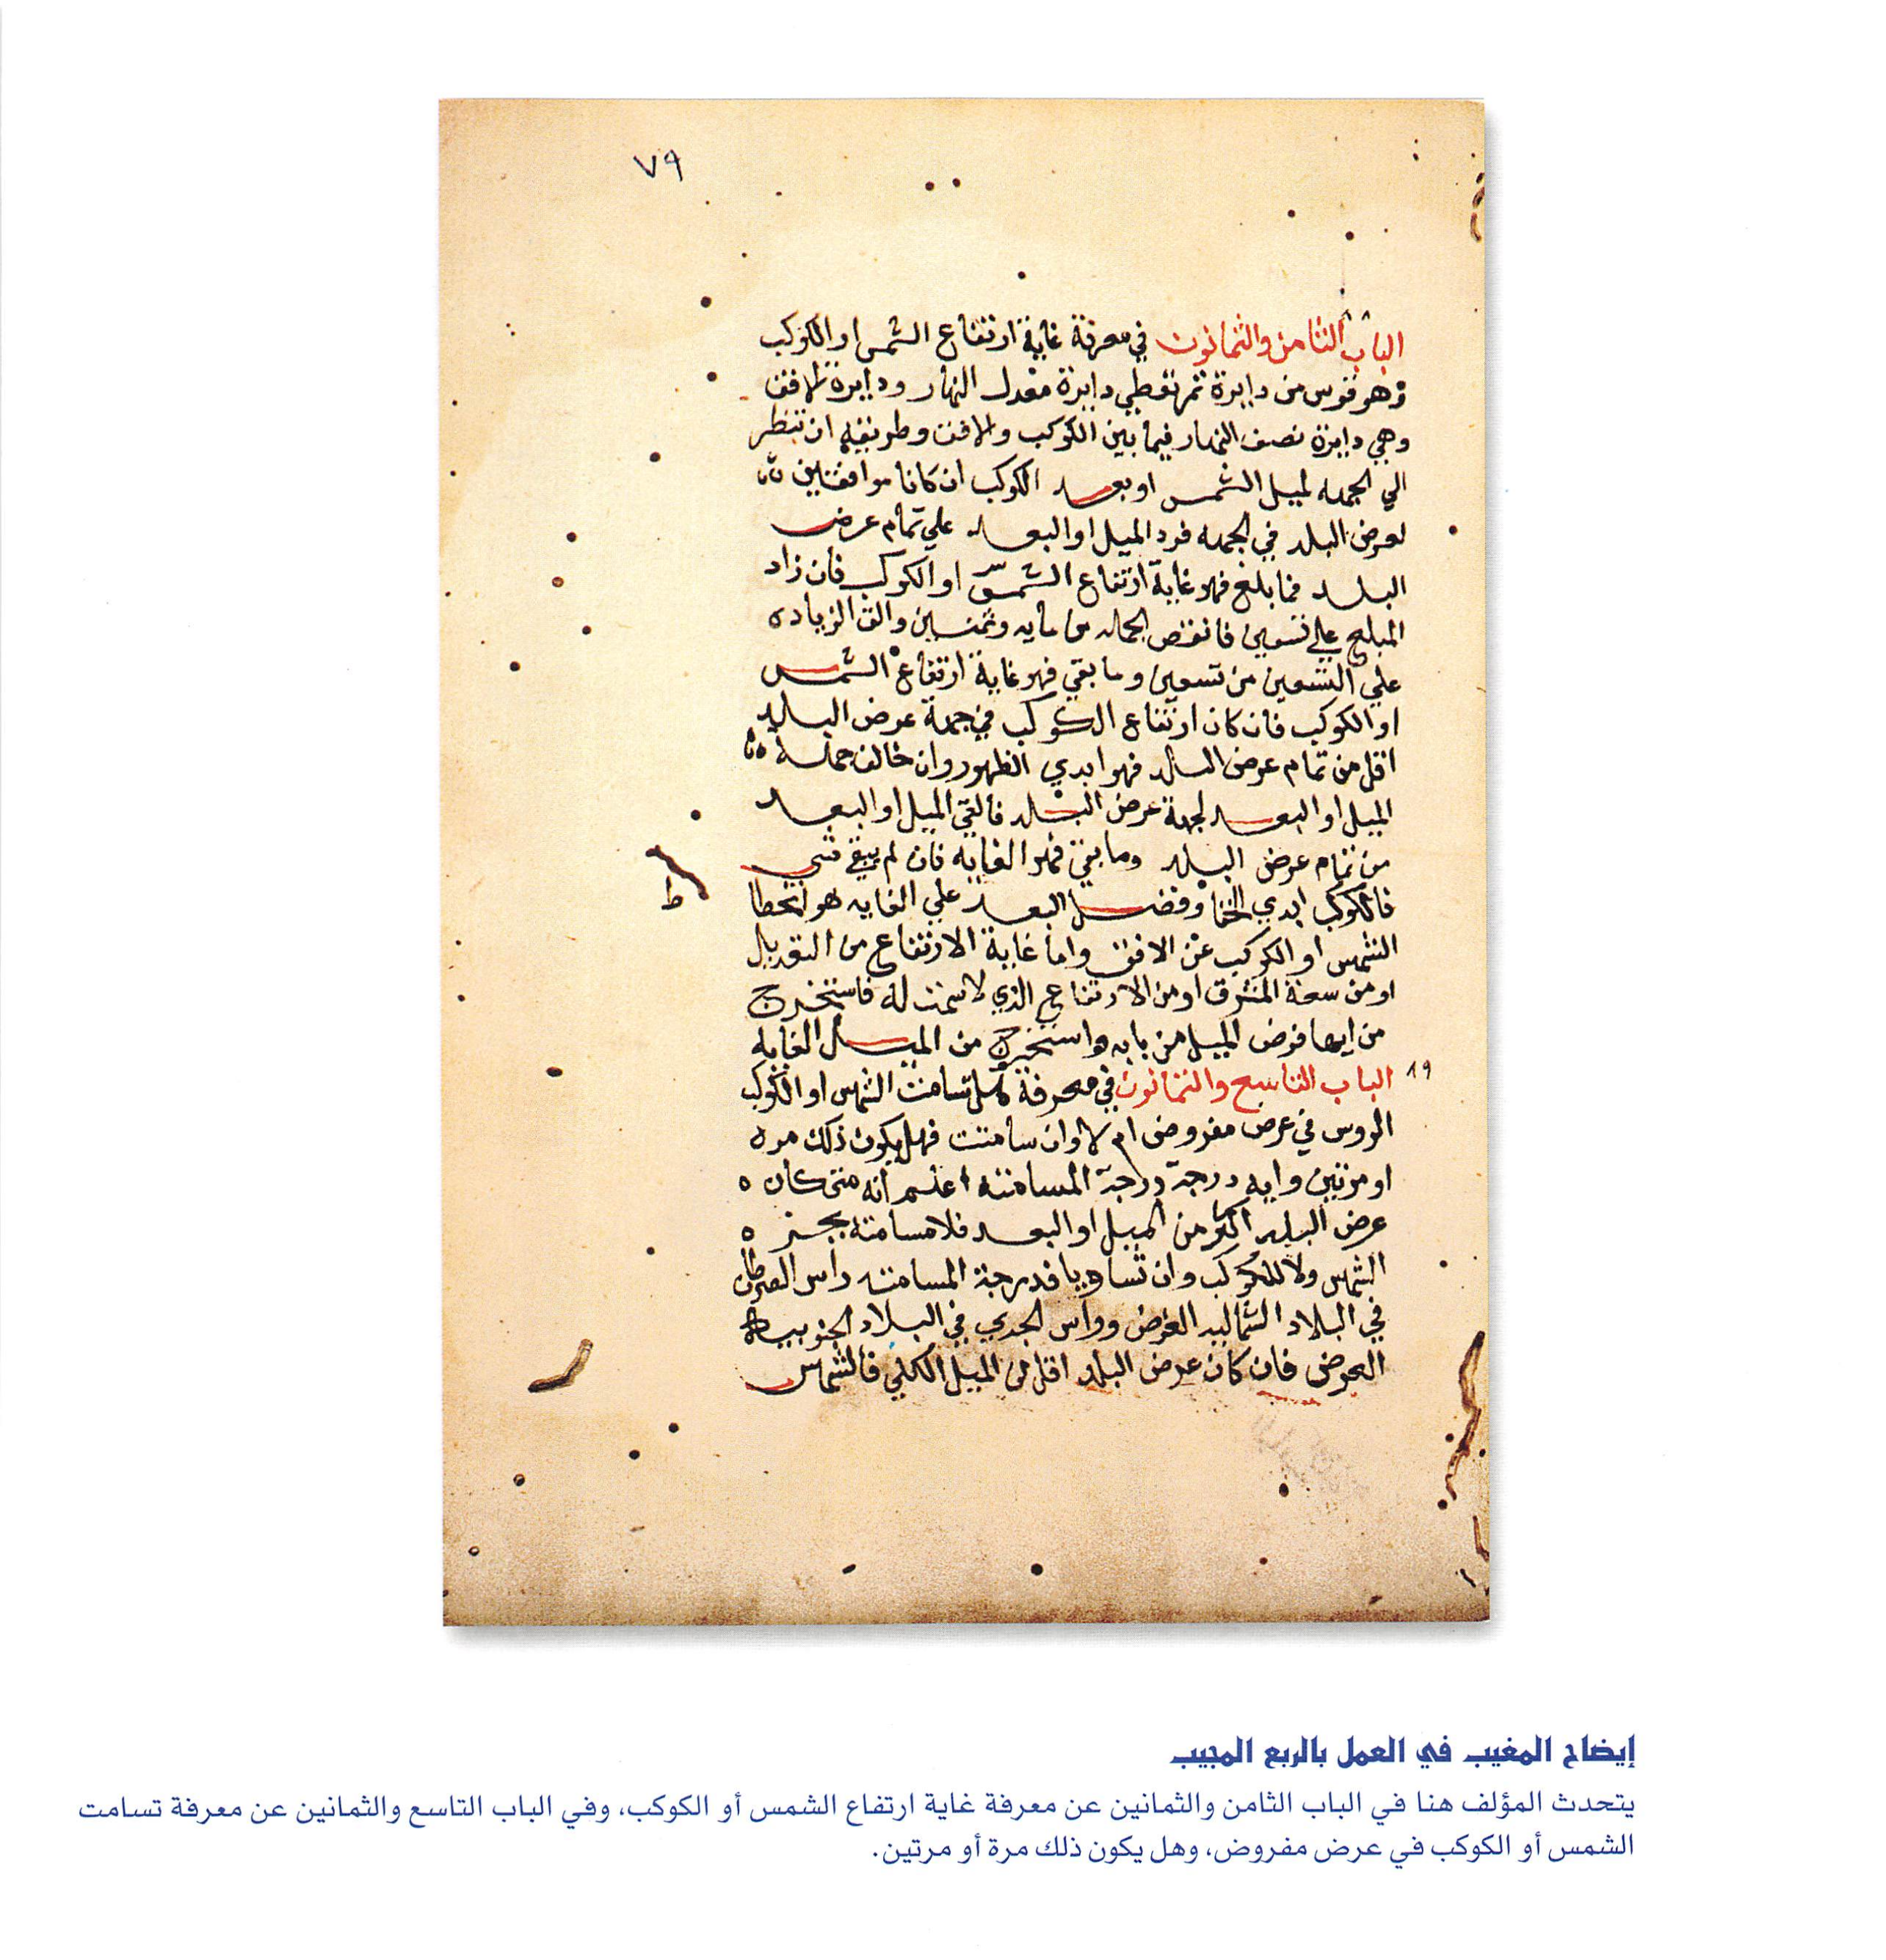 ٧٩
٨٨
الباب الثامن والثمانون في معرفة غاية ارتفاع الشمس او الكوكب
وهو قوس من دايرة تمر بقطبي دايرة معدل النهار ودايرة الافق
وهي دايرة نصف النهار فيما بين الكوكب والافق وطريقه ان تنظر
الي الجهه لميل الشمس او بعد الكوكب ان كانا موافقين
لعرض البلد في الجهه فزد الميل او البعد علي تمام عرض
البلد فما بلغ فهو غاية ارتفاع الشمس او الكوكب فان زاد
المبلغ علي تسعين فانقص الجمله من مايه وثمنين والق الزياده
علي التسعين من تسعين وما بقي فهو غاية ارتفاع الشمس
او الكوكب فان كان ارتفاع الكوكب في جهة عرض البلد
اقل من تمام عرض البلد فهو ابدي الظهور وان خالف جهة
الميل او البعد لجهة عرض البلد فالقي الميل او البعد
من تمام عرض البلد وما بقي فهو الغايه فان لم يبقي شي
فالكوكب ابدي الخفا وفضل البعد علي الغايه هو انحطا
ط
الشمس او الكوكب عن الافق واما غاية الارتفاع من التعديل
او من سعة المشرق او من الارتفاع الذي لا سمت له فاستخرج
من ايها فرض الميل من بابه واستخرج من الميل الغايه
٨٩
الباب التاسع والثمانون في معرفة هل تسامت الشمس او الكوكب
الروس في عرض مفروض ام لا وان سامتت فهل يكون ذلك مره
او مرتين وايه درجة درجة المسامته اعلم انه متي كان
عرض البلد اكثر من الميل او البعد فلا مسامتة بجز
الشمس ولا للكوكب وان تساويا فدرجة المسامته راس السرطان
في البلاد الشماليه العرض وراس الجدي في البلاد الجنوبيه
العرض فان كان عرض البلد اقل من الميل الكلي فالشمس
إيضاح المغيب في العمل بالربع المجيب
يتحدث المؤلف هنا في الباب الثامن والثمانين عن معرفة غاية ارتفاع الشمس أو الكوكب، وفي الباب التاسع والثمانين عن معرفة تسامت
الشمس أو الكوكب في عرض مفروض، وهل يكون ذلك مرة أو مرتين.